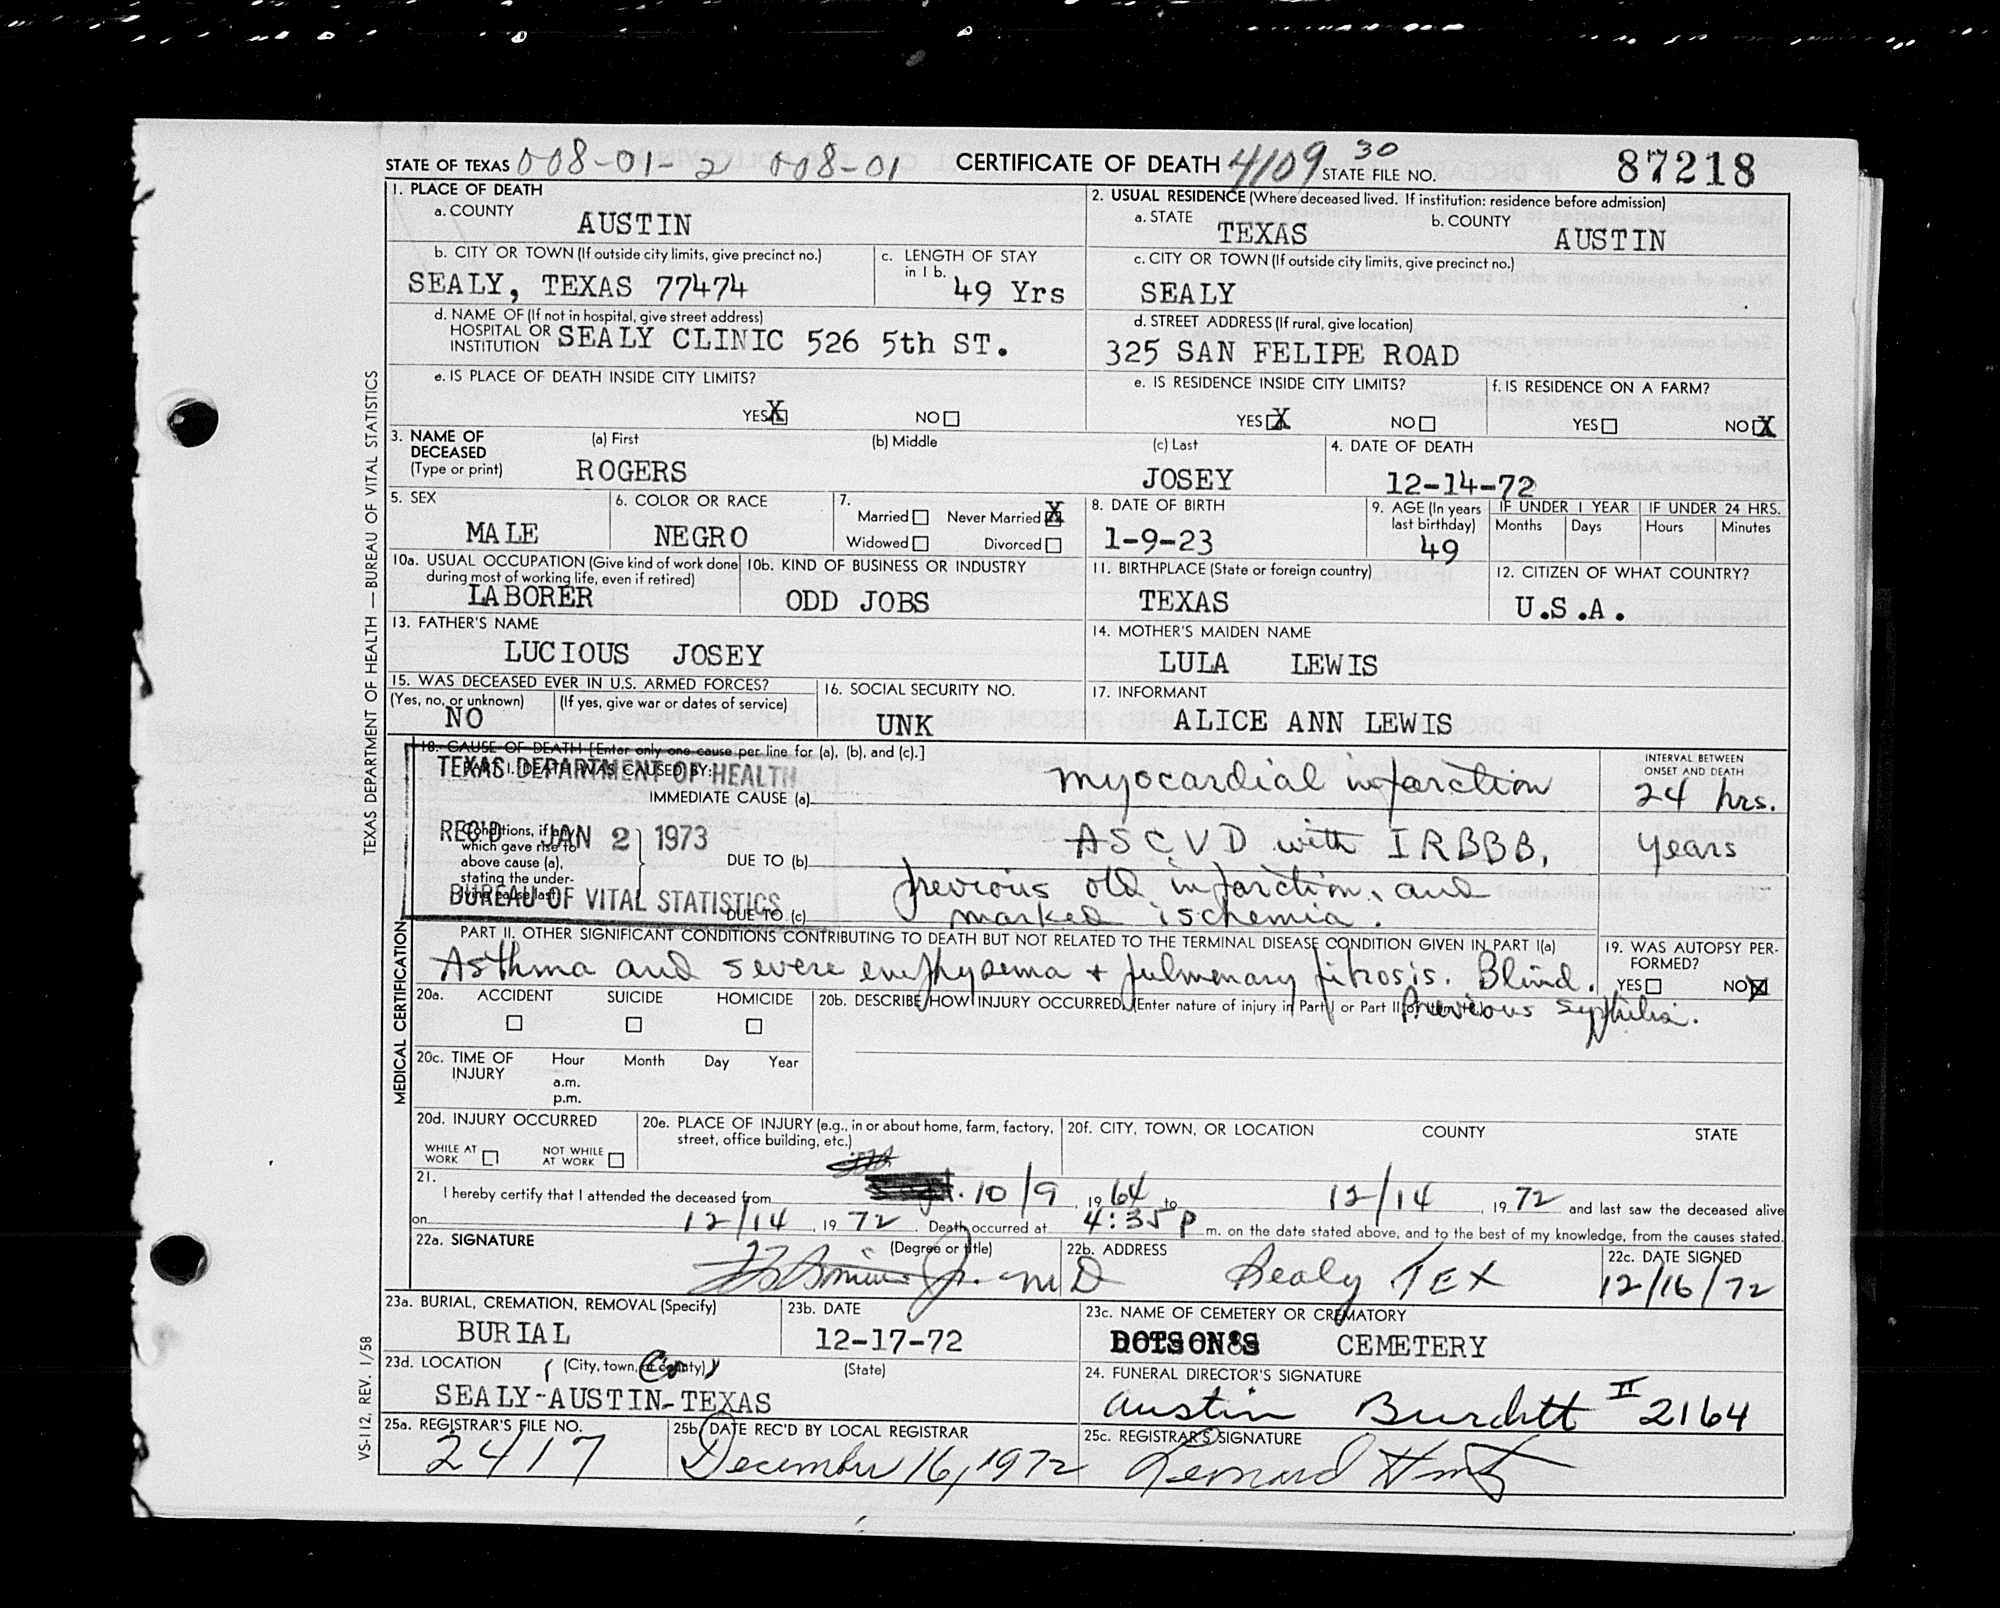 STATE OF TEXAS 008-01-2 008-01 CERTIFICATE OF DEATH 4109 30 STATE FILE NO. 87218
TEXAS DEPARTMENT OF HEALTH — BUREAU OF VITAL STATISTICS
1. PLACE OF DEATH
a. COUNTY
AUSTIN
2. USUAL RESIDENCE (Where deceased lived. If institution: residence before admission)
a. STATE b. COUNTY
TEXAS AUSTIN
b. CITY OR TOWN (If outside city limits, give precinct no.)
SEALY, TEXAS 77474
c. LENGTH OF STAY
in 1 b.
49 Yrs
c. CITY OR TOWN (If outside city limits, give precinct no.)
SEALY
d. NAME OF (If not in hospital, give street address)
HOSPITAL OR
INSTITUTION
SEALY CLINIC 526 5th ST.
d. STREET ADDRESS (If rural, give location)
325 SAN FELIPE ROAD
e. IS PLACE OF DEATH INSIDE CITY LIMITS?
YES X NO
e. IS RESIDENCE INSIDE CITY LIMITS?
YES X NO
f. IS RESIDENCE ON A FARM?
YES NO X
3. NAME OF
DECEASED
(Type or print)
(a) First (b) Middle (c) Last
ROGERS JOSEY
4. DATE OF DEATH
12-14-72
5. SEX
MALE
6. COLOR OR RACE
NEGRO
7.
Married Never Married X
Widowed Divorced
8. DATE OF BIRTH
1-9-23
9. AGE (In years
last birthday)
49
IF UNDER 1 YEAR
Months Days
IF UNDER 24 HRS.
Hours Minutes
10a. USUAL OCCUPATION (Give kind of work done
during most of working life, even if retired)
LABORER
10b. KIND OF BUSINESS OR INDUSTRY
ODD JOBS
11. BIRTHPLACE (State or foreign country)
TEXAS
12. CITIZEN OF WHAT COUNTRY?
U.S.A.
13. FATHER'S NAME
LUCIOUS JOSEY
14. MOTHER'S MAIDEN NAME
LULA LEWIS
15. WAS DECEASED EVER IN U.S. ARMED FORCES?
(Yes, no, or unknown) (If yes, give war or dates of service)
NO
16. SOCIAL SECURITY NO.
UNK
17. INFORMANT
ALICE ANN LEWIS
MEDICAL CERTIFICATION
18. CAUSE OF DEATH [Enter only one cause per line for (a), (b), and (c).]
PART I. DEATH WAS CAUSED BY:
TEXAS DEPARTMENT OF HEALTH
REC'D JAN 2 1973
BUREAU OF VITAL STATISTICS
IMMEDIATE CAUSE (a) myocardial infarction
INTERVAL BETWEEN
ONSET AND DEATH
24 hrs.
Conditions, if any,
which gave rise to
above cause (a),
stating the under-
lying cause last.
DUE TO (b) ASCVD with IRBBB,
years
previous old infarction, and
DUE TO (c) marked ischemia.
PART II. OTHER SIGNIFICANT CONDITIONS CONTRIBUTING TO DEATH BUT NOT RELATED TO THE TERMINAL DISEASE CONDITION GIVEN IN PART I(a)
Asthma and severe emphysema + pulmonary fibrosis. Blind.
Previous syphilis.
19. WAS AUTOPSY PER-
FORMED?
YES NO X
20a. ACCIDENT SUICIDE HOMICIDE
20b. DESCRIBE HOW INJURY OCCURRED. (Enter nature of injury in Part I or Part II
20c. TIME OF
INJURY
Hour Month Day Year
a.m.
p.m.
20d. INJURY OCCURRED
WHILE AT
WORK
NOT WHILE
AT WORK
20e. PLACE OF INJURY (e.g., in or about home, farm, factory,
street, office building, etc.)
20f. CITY, TOWN, OR LOCATION COUNTY STATE
21.
I hereby certify that I attended the deceased from 10/9, 1964 to 12/14, 1972 and last saw the deceased alive
on 12/14, 1972. Death occurred at 4:35 p m. on the date stated above, and to the best of my knowledge, from the causes stated.
22a. SIGNATURE (Degree or title)
Jr. MD
22b. ADDRESS
Sealy TEX
22c. DATE SIGNED
12/16/72
23a. BURIAL, CREMATION, REMOVAL (Specify)
BURIAL
23b. DATE
12-17-72
23c. NAME OF CEMETERY OR CREMATORY
DOTSON'S CEMETERY
23d. LOCATION (City, town, or county) (State)
SEALY-AUSTIN-TEXAS
24. FUNERAL DIRECTOR'S SIGNATURE
Austin Burdett II 2164
25a. REGISTRAR'S FILE NO.
2417
25b. DATE REC'D BY LOCAL REGISTRAR
December 16, 1972
25c. REGISTRAR'S SIGNATURE
Leonard
VS-112, REV. 1/58